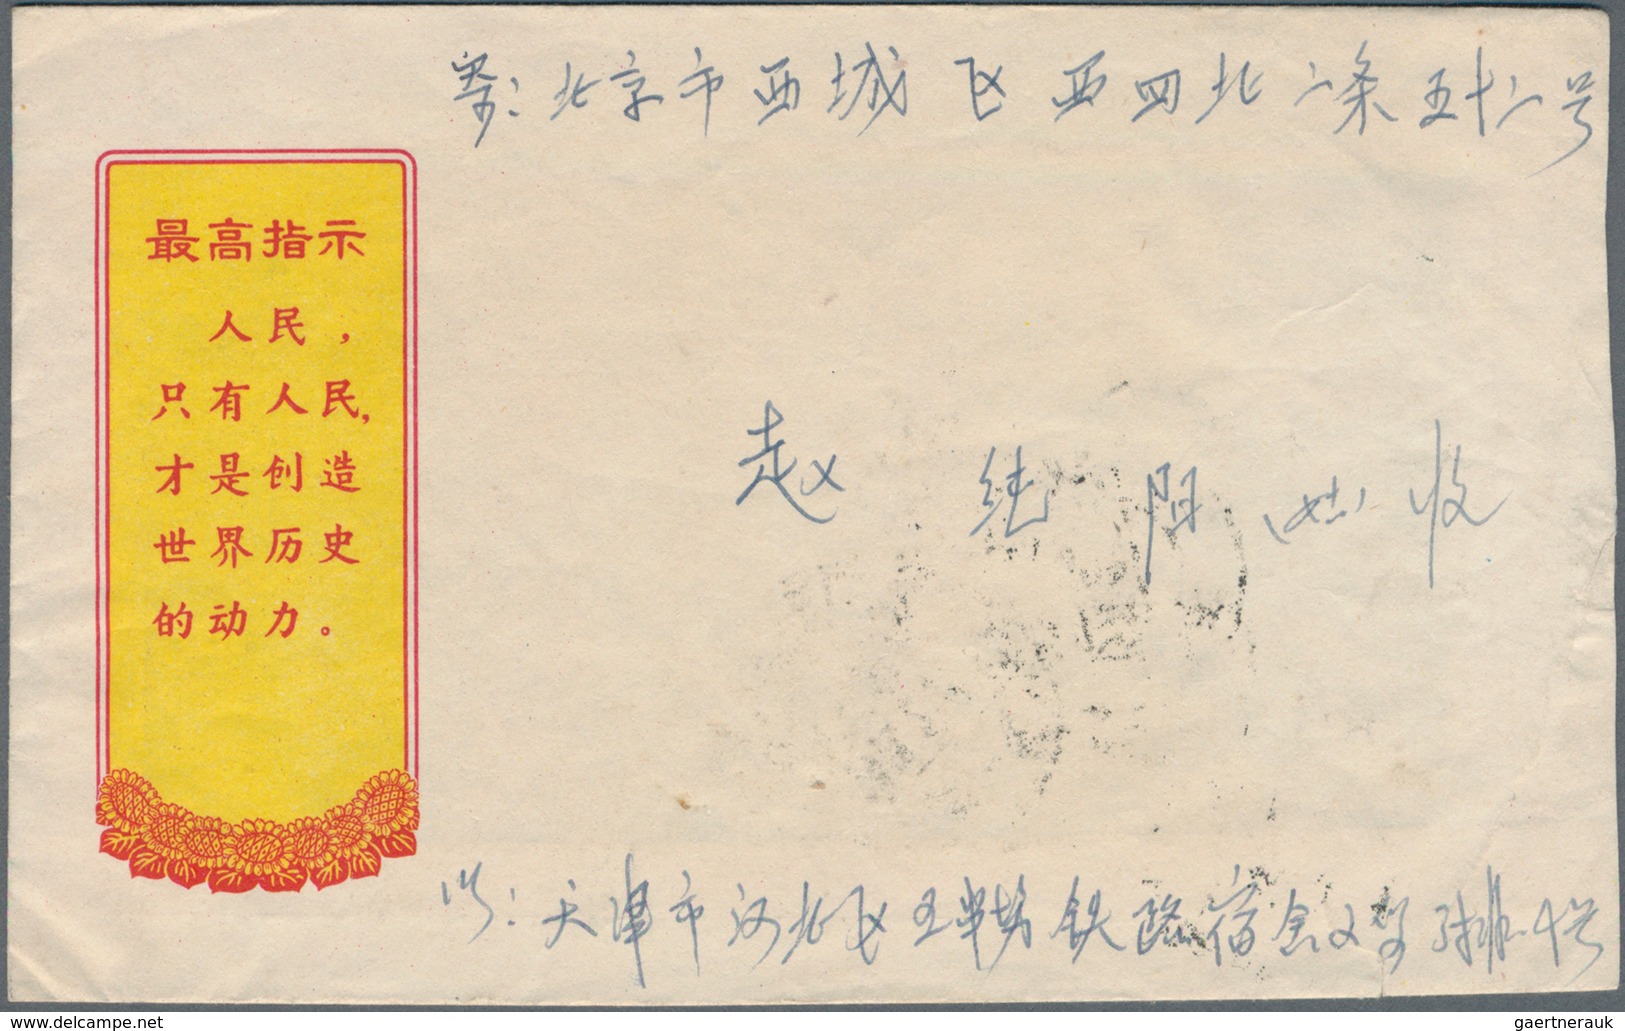 寄：北京市西城区西四北二条五十二号
最高指示
人民，
只有人民，
才是创造
世界历史
的动力。
赵 继 阳 收
天津市河北区王串场铁路宿舍 号
delcampe.net
gaertnerauk